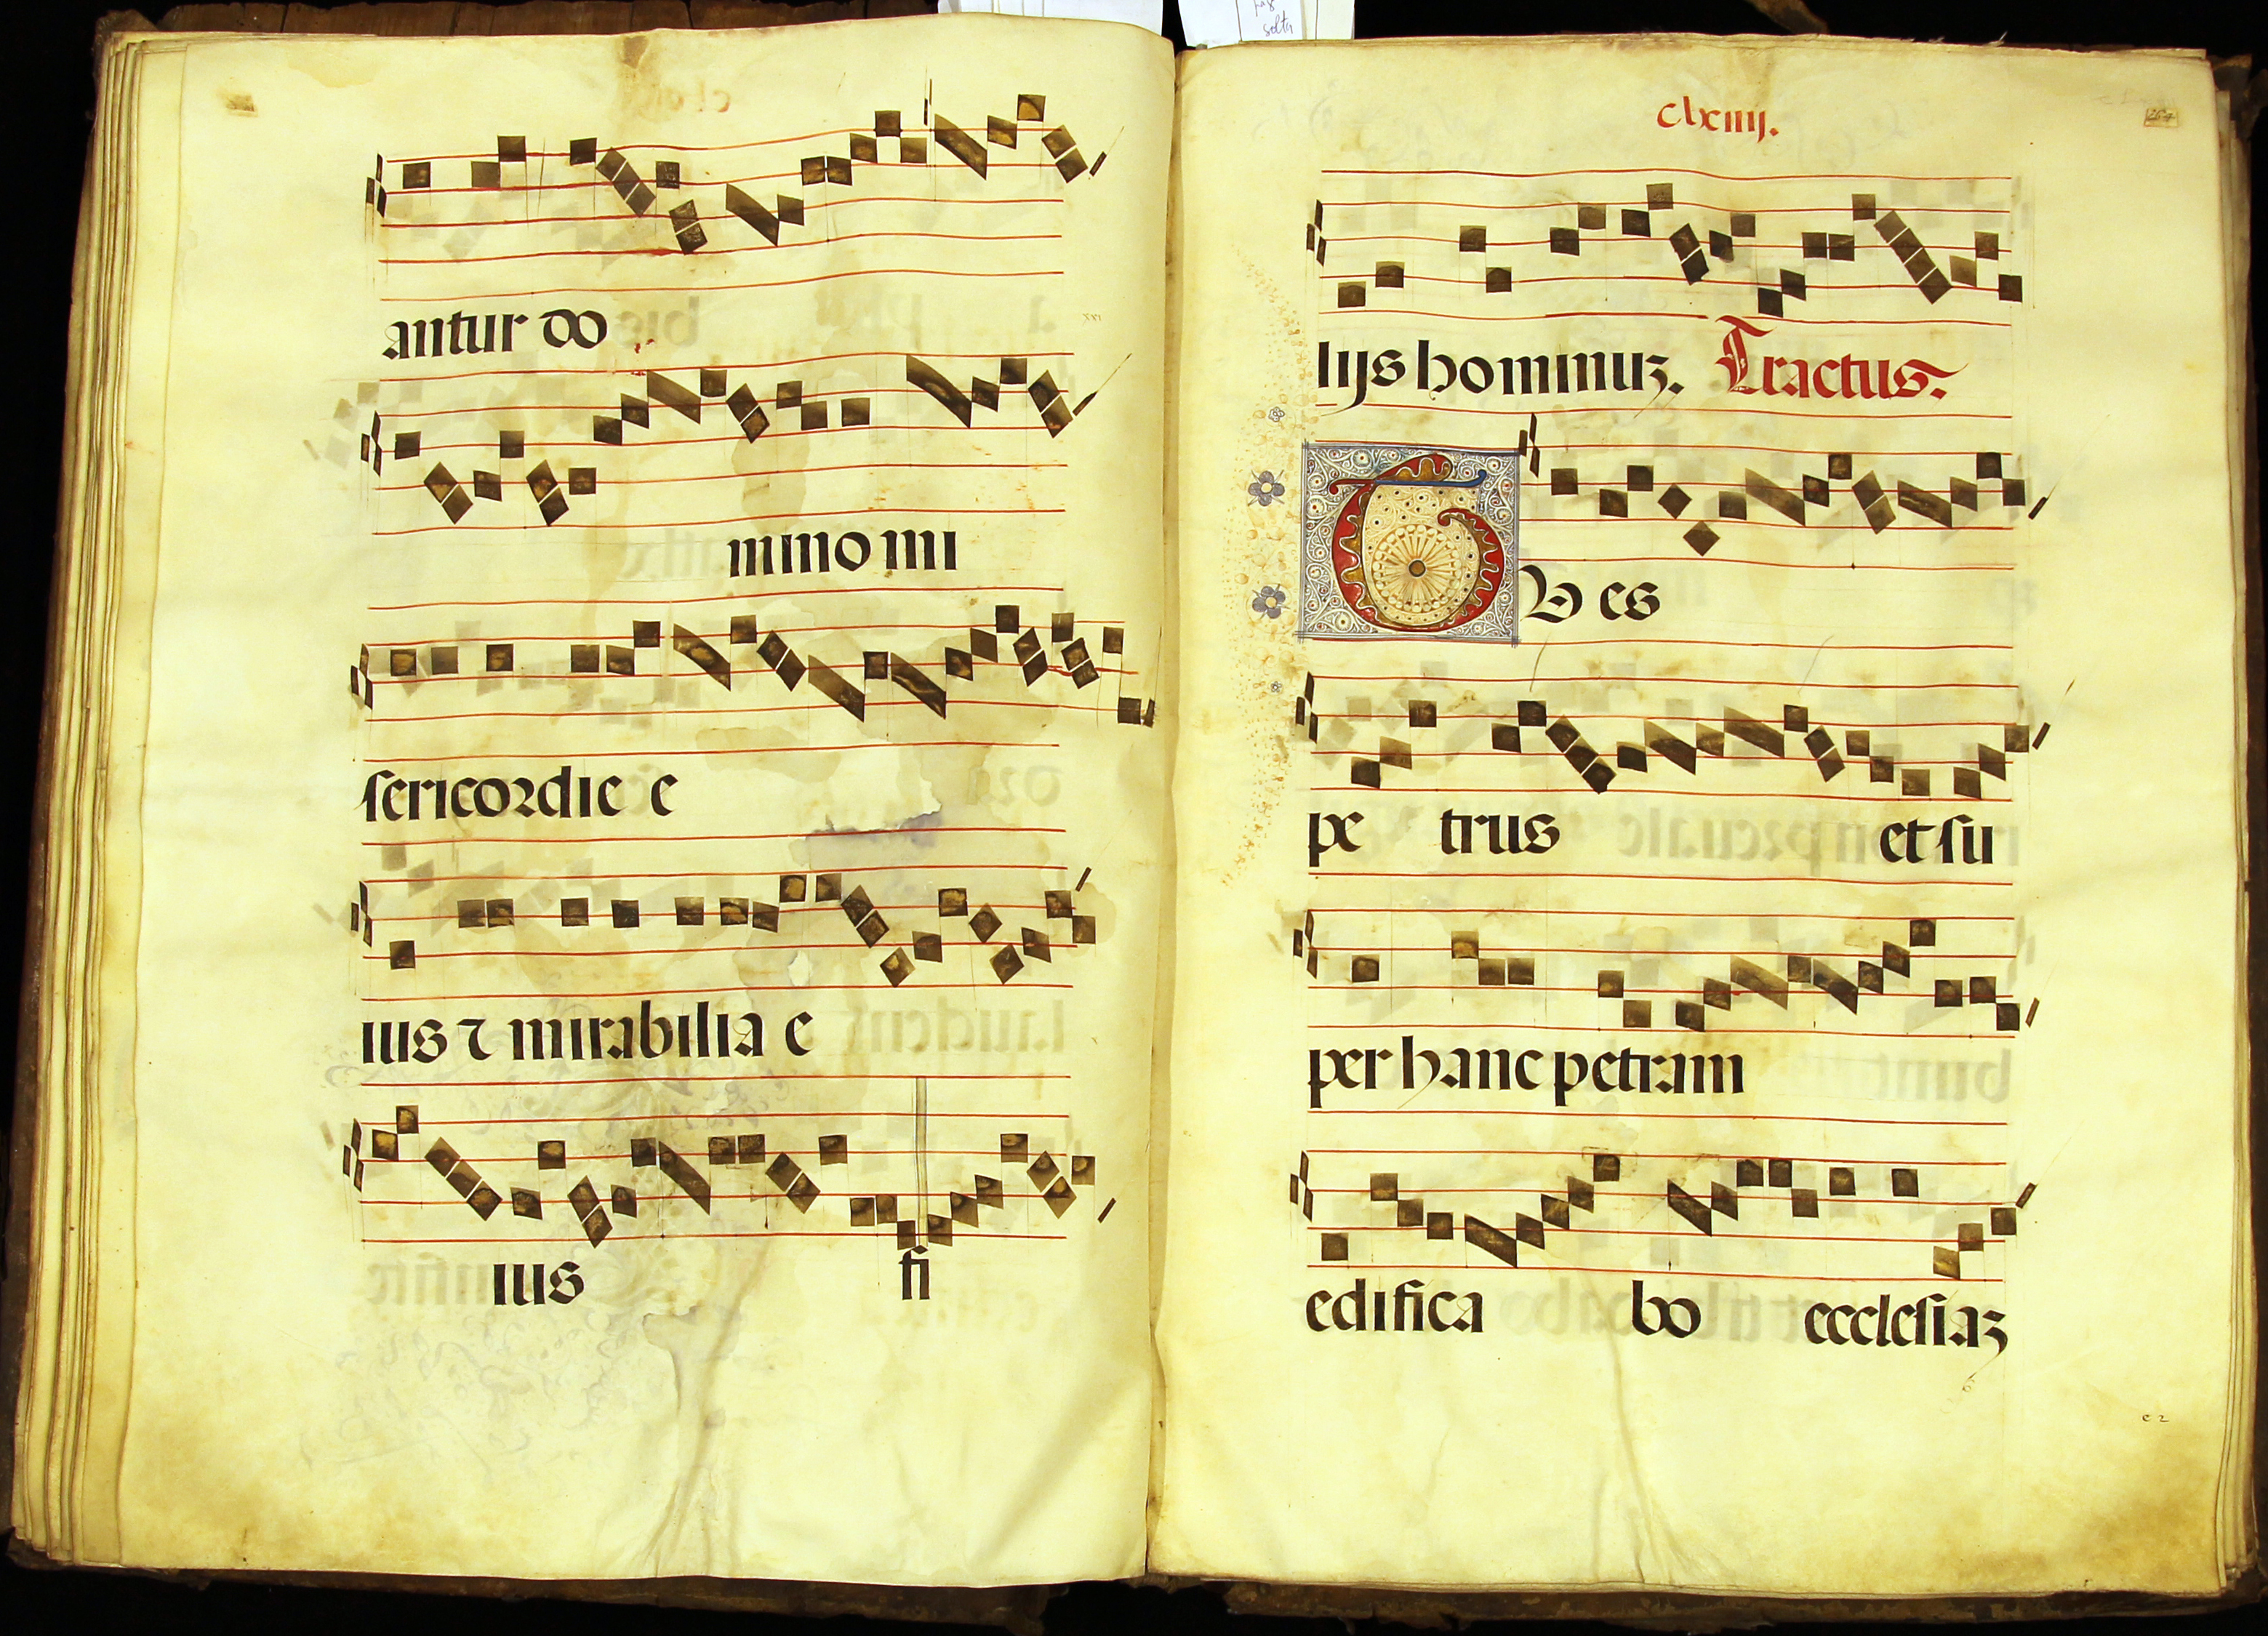 antur do
mino mi
sericordie e
ius ⁊ mirabilia e
ius fi
clxiiij.
264
lijs hominuꝫ. Tractus.
TV es
pe trus et su
per hanc petram
edifica bo ecclesiaꝫ